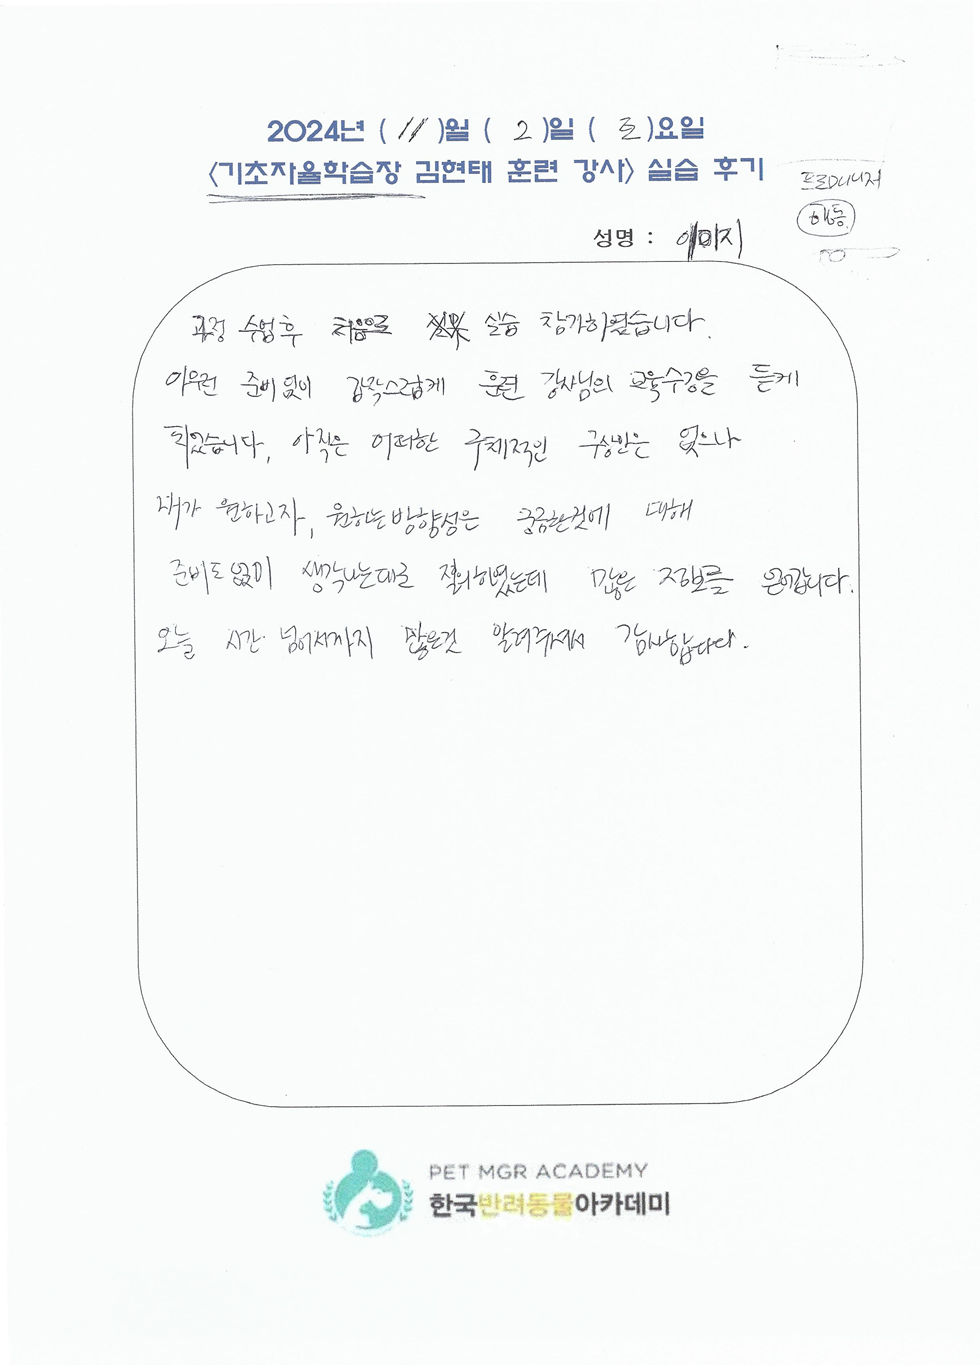 2024년 ( 11 )월 ( 2 )일 ( 토 )요일
<기초자율학습장 김현태 훈련 강사> 실습 후기
프로매니저
행동
성명 : 이미지
과정 수업후 처음으로 실습 참가하였습니다.
아무런 준비없이 갑작스럽게 훈련 강사님의 교육수강을 듣게
되었습니다, 아직은 어떠한 구체적인 구상만은 없으나
내가 원하고자, 원하는 방향성은 궁금한것에 대해
준비도 없이 생각나는대로 질의하였는데 많은 정보를 얻어갑니다.
오늘 시간 넘어서까지 많은것 알려주셔서 감사합니다.
PET MGR ACADEMY
한국반려동물아카데미